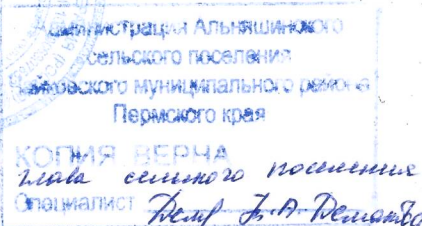 Администрация Альняшинского
сельского поселения
Чайковского муниципального района
Пермского края
КОПИЯ ВЕРНА
глава сельского поселения
Специалист